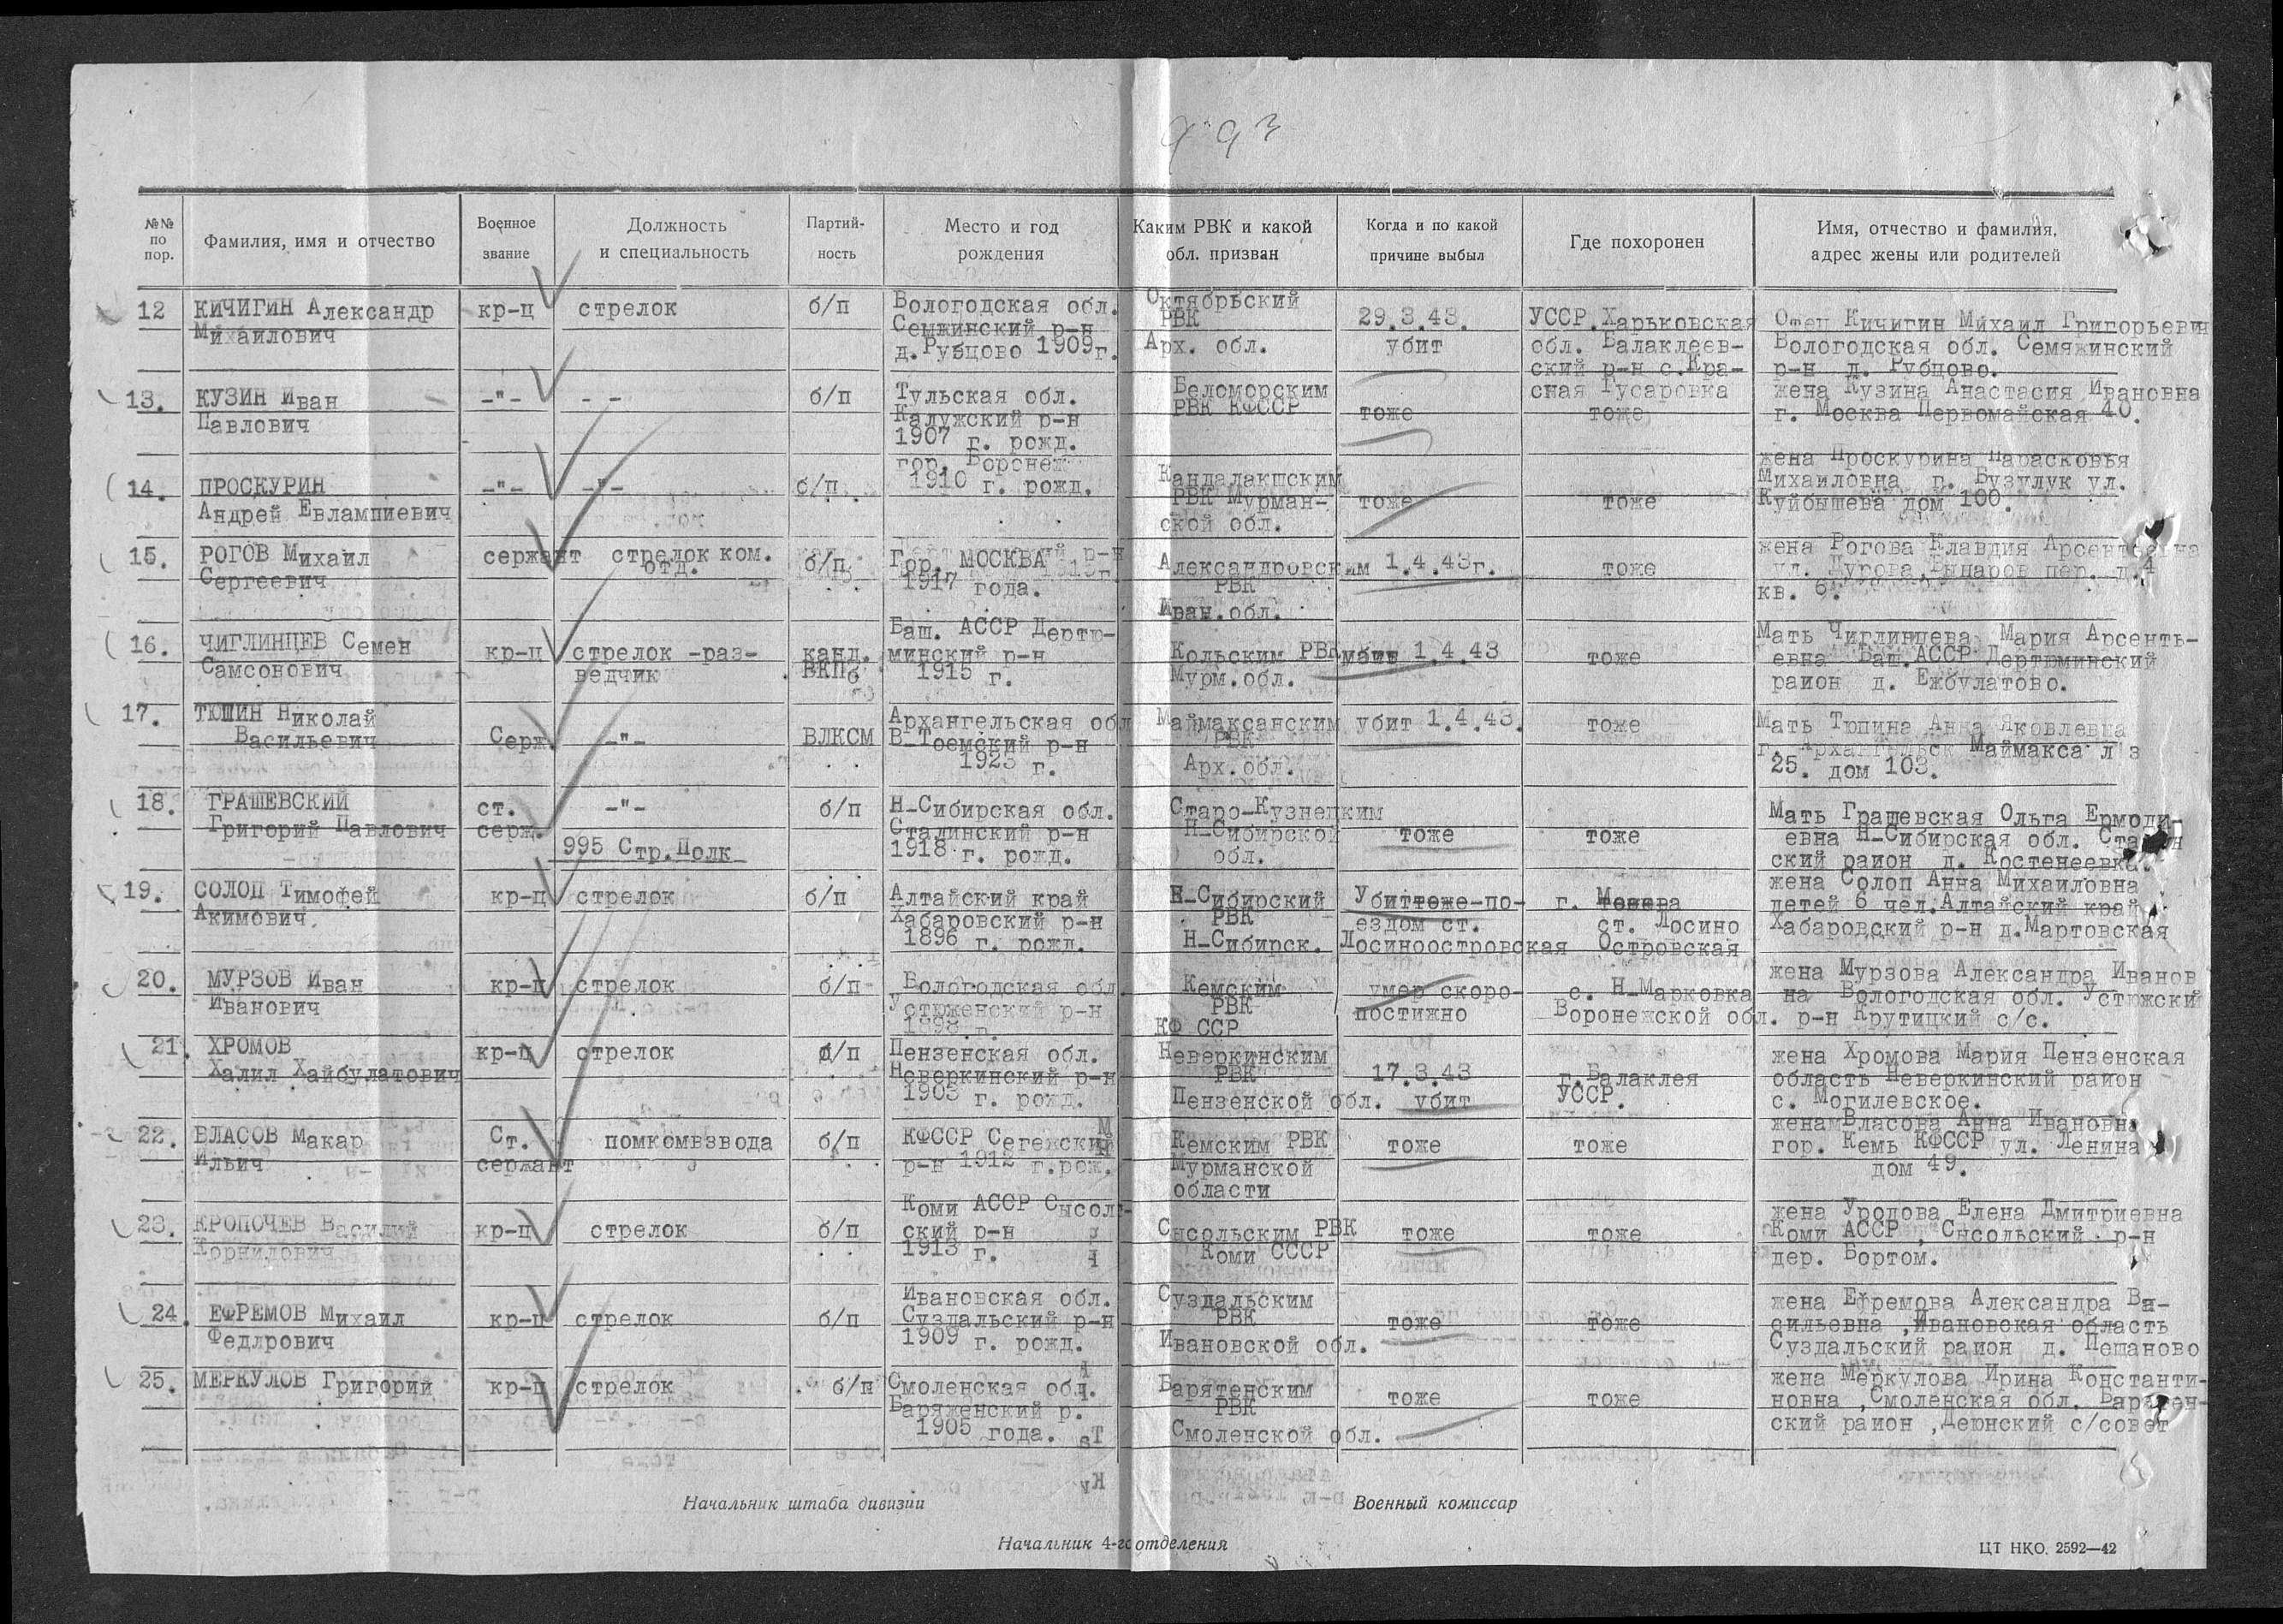 993
№№ по пор.
Фамилия, имя и отчество
Военное звание
Должность и специальность
Партий-ность
Место и год рождения
Каким РВК и какой обл. призван
Когда и по какой причине выбыл
Где похоронен
Имя, отчество и фамилия, адрес жены или родителей
12 КИЧИГИН Александр Михаилович
кр-ц
стрелок
б/п
Вологодская обл.
Семжинский р-н
д. Рубцово 1909г.
Октябрьский
РВК
Арх. обл.
29.3.43.
убит
УССР.Харьковская
обл. Балаклеев-
ский р-н с.Кра-
сная Гусаровка
Отец Кичигин Михаил Григорьевич
Вологодская обл. Семяжинский
р-н д. Рубцово.
13. КУЗИН Иван
Павлович
-"-
- -
б/п
Тульская обл.
Калужский р-н
1907 г. рожд.
Беломорским
РВК КФССР
тоже
тоже
жена Кузина Анастасия Ивановна
г. Москва Первомайская 40.
14. ПРОСКУРИН
Андрей Евлампиевич
-"-
-"-
б/п
гор. Воронеж
1910 г. рожд.
Кандалакшским
РВК Мурман-
ской обл.
тоже
тоже
жена Проскурина Парасковья
Михаиловна г. Бузулук ул.
Куйбышева дом 100.
15. РОГОВ Михаил
Сергеевич
сержант
стрелок ком.
отд.
б/п
Гор. МОСКВА
1917 года.
Александровским
РВК
Иван.обл.
1.4.43г.
тоже
жена Рогова Клавдия
ул. Дурова, пер. д.4
кв. 6.
16. ЧИГЛИНЦЕВ Семен
Самсонович
кр-ц
стрелок -раз-
ведчик
канд.
ВКПб
Баш. АССР Дертю-
минский р-н
1915 г.
Кольским РВК
Мурм.обл.
1.4.43
тоже
Мать Чиглинцева Мария Арсенть-
евна Баш.АССР Дертюминский
раион д. Ежбулатово.
17. ТЮПИН Николай
Васильевич
Серж.
-"-
ВЛКСМ
Архангельская обл
В-Тоемский р-н
1923 г.
Маймаксанским
РВК
Арх.обл.
убит 1.4.43.
тоже
Мать Тюпина Анна Яковлевна
г. Архангельск Маймакса л з
25. дом 103.
18. ГРАШЕВСКИЙ
Григорий Павлович
ст.
серж.
-"-
б/п
Н-Сибирская обл.
Сталинский р-н
1918 г. рожд.
Старо-Кузнецким
Н-Сибирской
обл.
тоже
тоже
Мать Грашевская Ольга Ермоди-
евна Н-Сибирская обл.
ский раион д. Костенеевка.
995 Стр.Полк
19. СОЛОП Тимофей
Акимович.
кр-ц
стрелок
б/п
Алтайский край
Хабаровский р-н
1896 г. рожд.
Н-Сибирский
РВК
Н-Сибирск.
Убит по-
ездом ст.
Лосиноостровская
г.
ст. Лосино
Островская
жена Солоп Анна Михаиловна
детей 6 чел.Алтайский край
Хабаровский р-н д.Мартовская
20. МУРЗОВ Иван
Иванович
кр-ц
стрелок
б/п
Вологодская обл.
Устюженский р-н
1898 г.
Кемским
РВК
КФ ССР
умер скоро-
постижно
с. Н-Марковка
Воронежской обл.
жена Мурзова Александра Иванов
на Вологодская обл. Устюжский
р-н Крутицкий с/с.
21. ХРОМОВ
Халил Хайбулатович
кр-ц
стрелок
б/п
Пензенская обл.
Неверкинский р-н
1903 г. рожд.
Неверкинским
РВК
Пензенской обл.
17.3.43
убит
г.Балаклея
УССР.
жена Хромова Мария Пензенская
область Неверкинский раион
с. Могилевское.
22. ВЛАСОВ Макар
Ильич
Ст.
сержант
помкомвзвода
б/п
КФССР Сегежский
р-н 1912 г.рож.
Кемским РВК
Мурманской
области
тоже
тоже
жена Власова Анна Ивановна
гор. Кемь КФССР ул. Ленина
дом 49.
23. КРОПОЧЕВ Василий
Корнилович
кр-ц
стрелок
б/п
Коми АССР Сысоль-
ский р-н
1913 г.
Снсольским РВК
Коми СССР
тоже
тоже
жена Уропова Елена Дмитриевна
Коми АССР , Снсольский р-н
дер. Бортом.
24. ЕФРЕМОВ Михаил
Федлрович
кр-ц
стрелок
б/п
Ивановская обл.
Суздальский р-н
1909 г. рожд.
Суздальским
РВК
Ивановской обл.
тоже
тоже
жена Ефремова Александра Ва-
сильевна ,Ивановская область
Суздальский раион д. Пешаново
25. МЕРКУЛОВ Григорий
кр-ц
стрелок
б/п
Смоленская обл.
Баряженский р.
1905 года.
Барятенским
РВК
Смоленской обл.
тоже
тоже
жена Меркулова Ирина Константи-
новна ,Смоленская обл. Барятен-
ский раион ,Дернский с/совет
Начальник штаба дивизии
Военный комиссар
Начальник 4-го отделения
ЦТ НКО. 2592—42